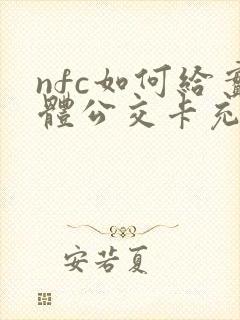 nfc如何給
體公交卡充
安若夏